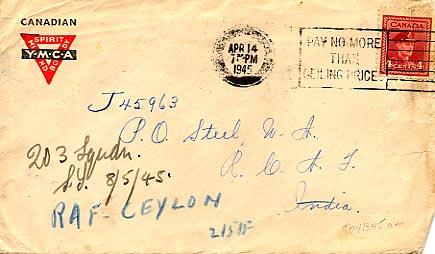 CANADIAN
SPIRIT
MIND BODY
Y·M·C·A
APR 14
PM
1945
PAY NO MORE
THAN
CEILING PRICE
CANADA
4 CENTS 4
J45963
P.O. Steel, W. A.
R. C. A. F.
India.
203 Squdn.
8/5/45.
RAF-CEYLON